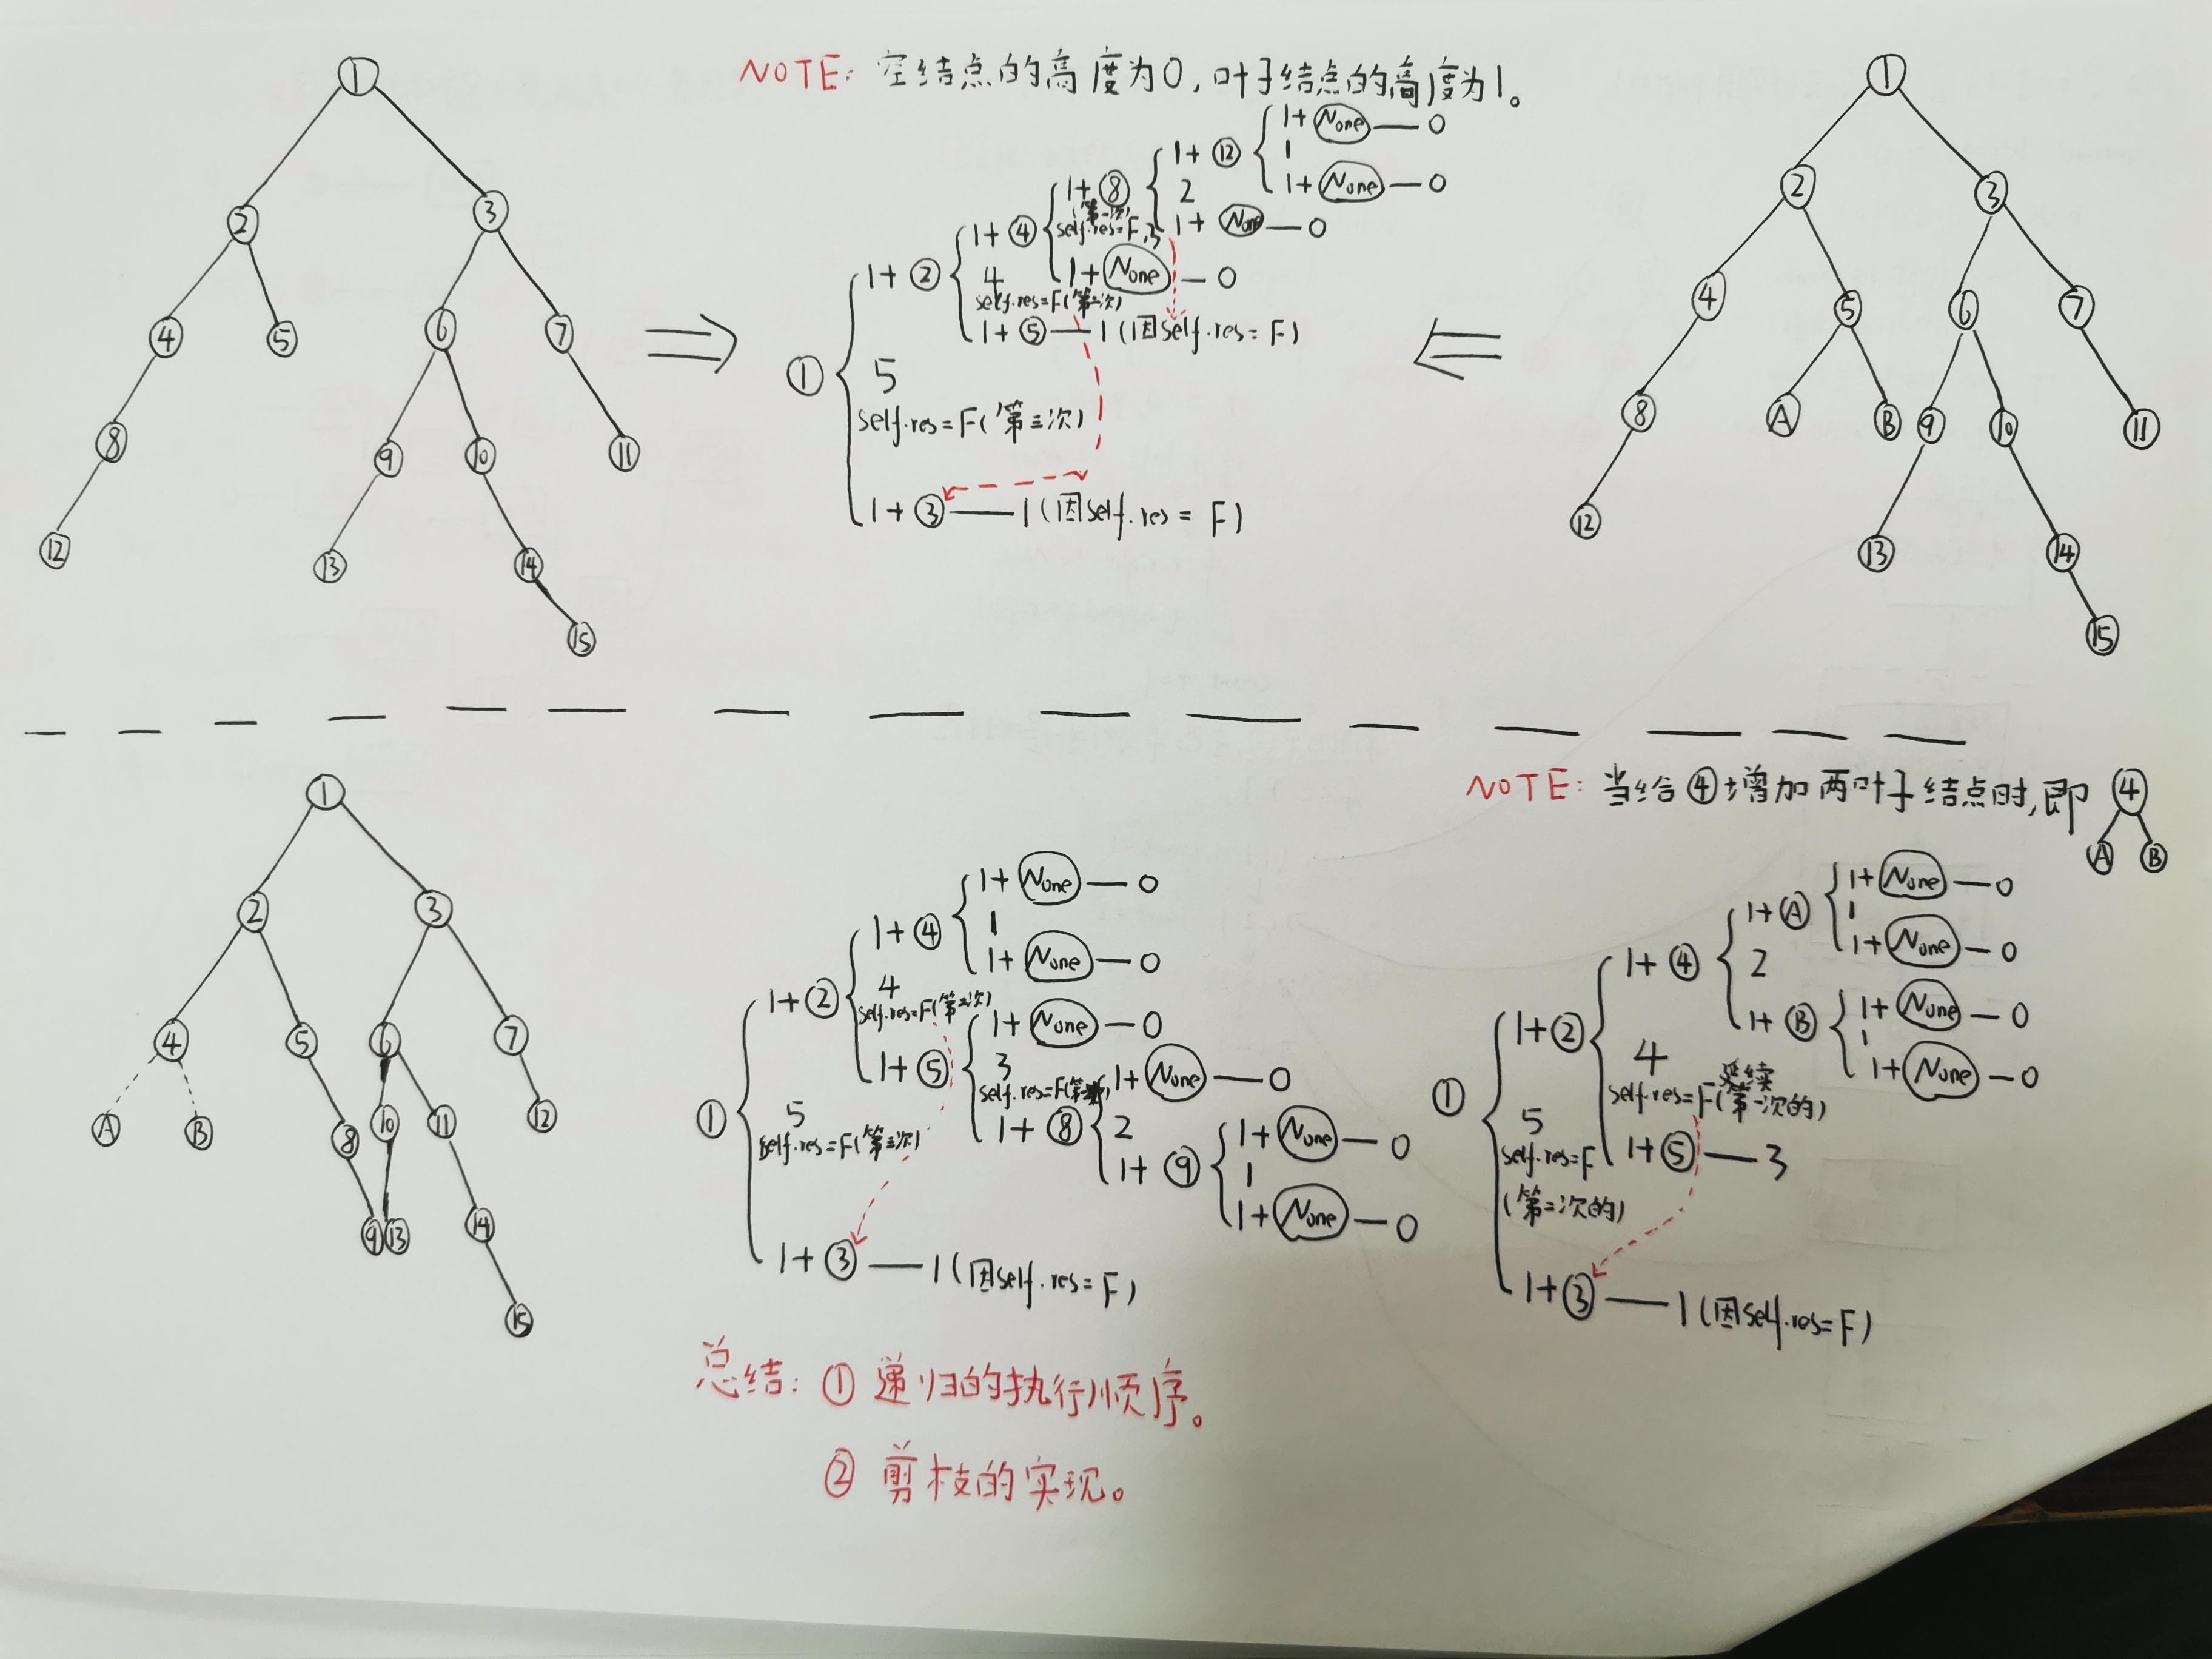 NOTE: 空结点的高度为0,叶子结点的高度为1。
①
②
③
④
⑤
⑥
⑦
⑧
⑨
⑩
⑪
⑫
⑬
⑭
⑮
①
1+②
1+④
1+⑧
(第一次)
self.res=F,3
1+⑫
1+None—0
1
1+None—0
2
1+None—0
1+None—0
4
self.res=F(第二次)
1+⑤—1(因self.res=F)
5
self.res=F(第三次)
1+③—1(因self.res=F)
①
②
③
④
⑤
⑥
⑦
⑧
A
B
⑨
⑩
⑪
⑫
⑬
⑭
⑮
①
②
③
④
⑤
⑥
⑦
A
B
⑧
⑩
⑪
⑫
⑨
⑬
⑭
⑮
①
1+②
1+④
1+None—0
1
1+None—0
4
self.res=F(第二次)
1+⑤
1+None—0
3
1+⑧
1+None—0
2
1+⑨
1+None—0
1
1+None—0
5
self.res=F(第三次)
1+③—1(因self.res=F)
NOTE: 当给④增加两叶子结点时,即
④
A
B
①
1+②
1+④
1+A
1+None—0
1
1+None—0
2
1+B
1+None—0
1
1+None—0
4
延续
self.res=F(第一次的)
1+⑤—3
5
self.res=F
(第二次的)
1+③—1(因self.res=F)
总结: ①递归的执行顺序。
②剪枝的实现。